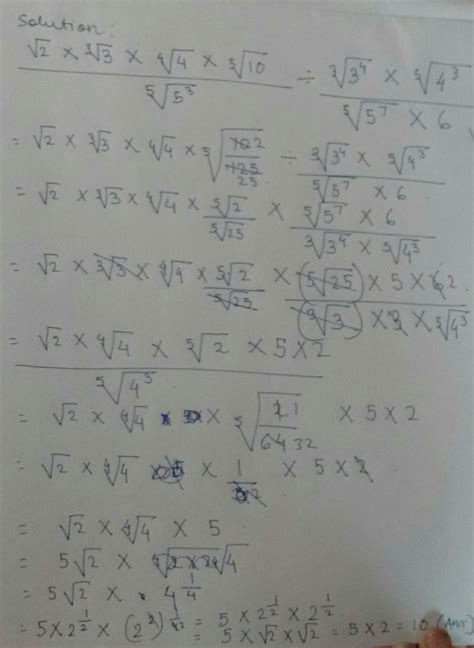 Solution:
(√2 × ³√3 × ⁴√4 × ⁵√10) / ⁵√5³ ÷ (³√3⁴ × ⁵√4³) / (⁵√5⁷ × 6)
= √2 × ³√3 × ⁴√4 × ⁵√(10 2 / 125 25) ÷ (³√3⁴ × ⁵√4³) / (⁵√5⁷ × 6)
= √2 × ³√3 × ⁴√4 × ⁵√2 / ⁵√25 × (⁵√5⁷ × 6) / (³√3⁴ × ⁵√4³)
= √2 × ³√3 × ⁴√4 × ⁵√2 / ⁵√25 × ((⁵√25) × 5 × 6 2) / ((³√3) × 3 × ⁵√4³)
= (√2 × ⁴√4 × ⁵√2 × 5 × 2) / ⁵√4³
= √2 × ⁴√4 × ⁵√(2 1 / 64 32) × 5 × 2
= √2 × ⁴√4 × 1/2 × 5 × 2
= √2 × ⁴√4 × 5
= 5√2 × ⁴√4
= 5√2 × 4^(1/4)
= 5 × 2^(1/2) × (2²)^(1/4 2) = 5 × 2^(1/2) × 2^(1/2)
= 5 × √2 × √2 = 5 × 2 = 10 (Ans)